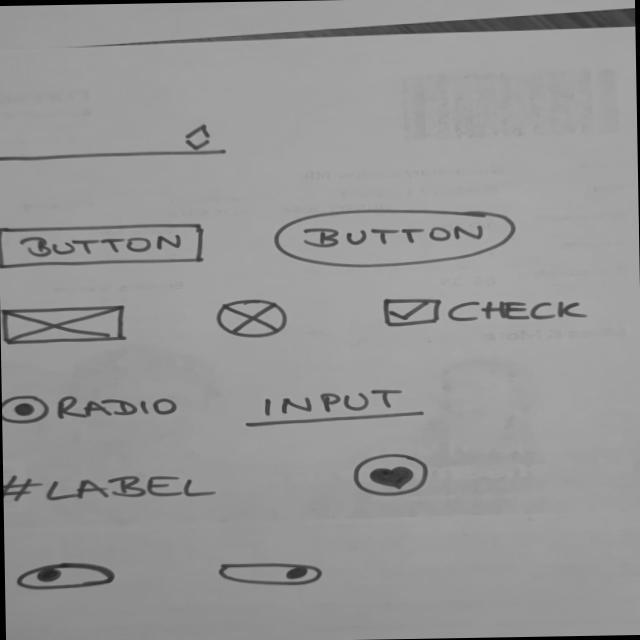 BUTTON BUTTON
CHECK
RADIO INPUT
#LABEL